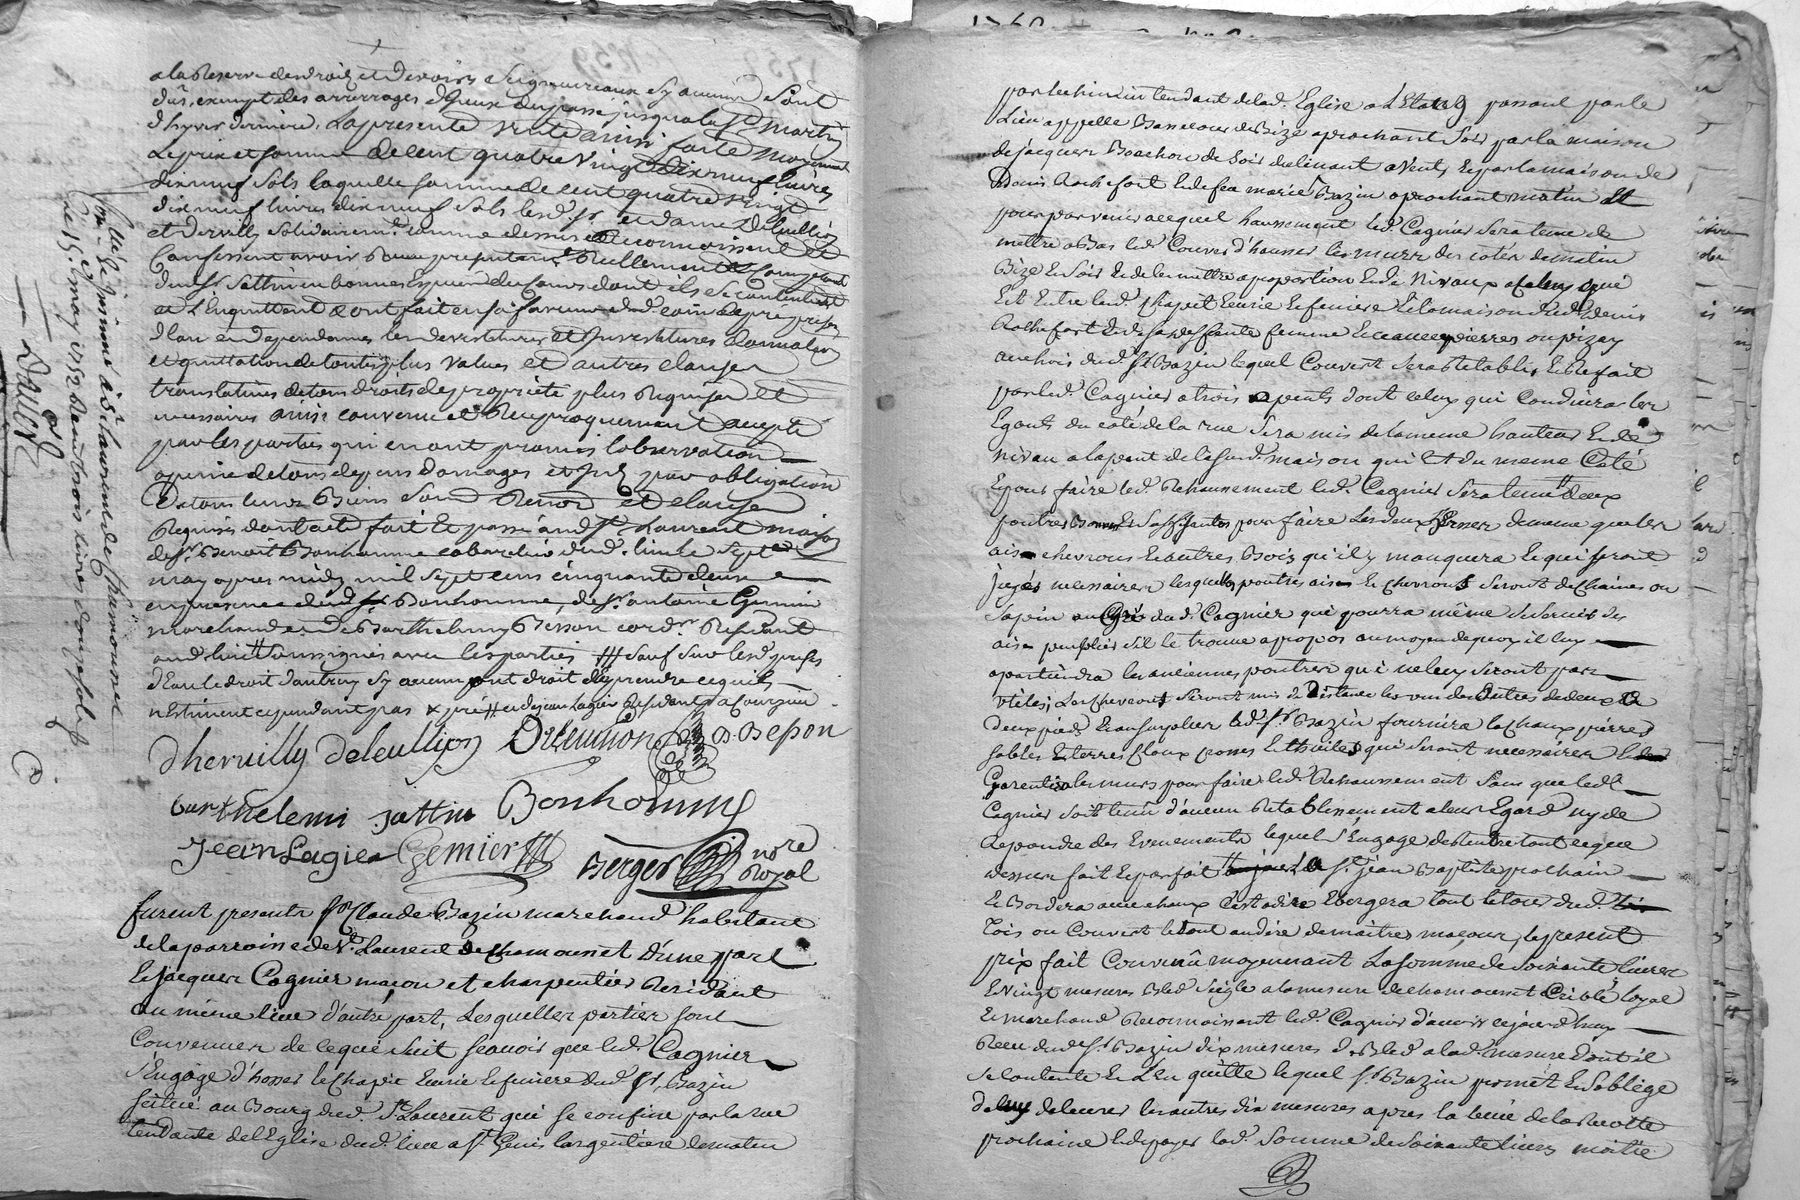 a la Reserve des droits et devoirs Seigneuriaux sy aucuns Sont
dus, exempt des arrerages d'iceux du passé jusqua la st martin
d'hyver derniere, La presente vente ainsi faite moyennant
Le prix et somme de Cent quatre vingt dix neuf livres
dix neuf sols laquelle somme de cent quatre vingt
dix neuf livres dix neuf sols lesd. sr. et dame Deleullion
et Dervilly solidairemt. comme dessus Reconnoissent et
Confessent avoir Reellement comptant
dud. sr Jattin en bonnes Especes de Cours dont ils se contentent
et L'Enquittent
d'eau en dependantes les devestitures et Investitures
et quittation de toutes plus values et autres clauses
translatives de tous droits de propriété plus Requises et
necessaires ainsi convenu et Reciproquement accepté
par les parties qui en ont promis l'observation
a peine de tous depens domages et par obligation
De tous leurs Biens Sous Renon et clauses
Requises dont acte fait Et passé aud. St. Laurent maison
de sr. Benoit Bonhomme cabaretier dud. lieu le sept
may apres midy mil sept cens cinquante deux
en presence dud. sr Bonhomme, de sr. antoine Gemier
marchand et de Barthelemy Besson cord.er Residant
aud. lieu soussignés avec les parties sauf sur les d. prises
d'Eau le droit d'autruy sy aucun ont droit d'y prendre ce qu'ils
n'Estiment cependant pas et Jean Lagier Residant a Courzieu
Dhervilly deleullion Deleullion B. Besson
barthelemi jattin Bonhomme
Jean Lagier Gemier
Berger nore
Royal
furent presents sr. Claude Bazin marchand habitant
de la parroisse de St. Laurent de Chamousset d'une part
Et jacques Cagnier maçon et charpentier Residant
au même lieu d'autre part, Lesquelles parties sont
Convenues de ce qui suit sçavoir que led. Cagnier
s'Engage d'hosser le Chapit Ecurie Et feniere dud. sr. Bazin
scitué au Bourg dud. St Laurent qui se confine par la rue
tendante de l'Eglise dud. lieu a St. Genis largentiere de matin
Controllé & Insinué a St. laurent de chamousset
le 15. may 1752 Reçu trois livres
Dauex
par le chemin tendant de lad. Eglise a L'Etang passant par le
Lieu appellé de Bize aprochant soir par la maison
de jacques Bouchon de soir declinant a vent, Et par la maison de
Denis Rochefort Et de feu marie Bazin aprochant matin
pour parvenir auquel haussement led. Cagnier sera tenu de
mettre a Bas led. Couvert d'hausser les murs des cotés de matin
Bize Et soir Et de les mettre a proportion Et de Niveau a celuy qui
Est Entre led. Chapit Ecurie Et feniere Et la maison dud. denis
Rochefort Et de sa deffunte femme Et ce avec pierres ou pizay
au choix dud. sr Bazin lequel Couvert sera Retabli Et Refait
par led. Cagnier a trois pents dont celuy qui Conduira les
Egouts du coté de la rue Sera mis de la meme hauteur Et de
niveau a la pent de lad. maison qui Est du meme Coté
Et pour faire led. Rehaussement led. Cagnier Sera tenu deux
poutres Bonnes Et Suffisantes pour faire Les deux de meme que les
ais chevrons Et autres Bois qu'il y manquera Et qui seront
jugés necessaires lesquels poutres ais Et chevrons seront de Chaines ou
Sapin au Gré dud. Cagnier qui pourra même se servir des
ais s'il le trouve a propos au moyen de quoy il luy
apartiendra les anciennes poutres qui ne leur seront pas
utiles; Les chevrons seront mis de Distance les uns des Autres de deux
deux pieds Et au surplus led. sr Bazin fournira la chaux pierres
sables Et terres Et thuiles qui seront necessaires
Garentira les murs pour faire led. Rehaussement sans que led.
Cagnier soit tenu d'aucun Retablissement a leur Egard ny de
Repondre des Evenements lequel s'Engage de rendre tout ce que
dessus fait Et parfait a la St. jean Baptiste prochain
Et Bordera avec chaux C'est a dire Ebergera tout le tour dud.
Tois ou Couvert le tout au dire de maitres maçons, le present
prix fait Convenû moyennant La somme de soixante livres
Et vingt mesures Bled Seigle a la mesure de chamousset Criblé loyal
Et marchand Reconnoissant led. Cagnier d'avoir ce jourd'huy
Receu dud. sr. Bazin dix mesures d. Bled a lad. mesure dont il
se contente Et L'En quitte lequel sr Bazin promet Et s'oblige
de luy delivrer les autres dix mesures apres la levée de la Recolte
prochaine Et de payer lad. Somme de soixante livres moitié